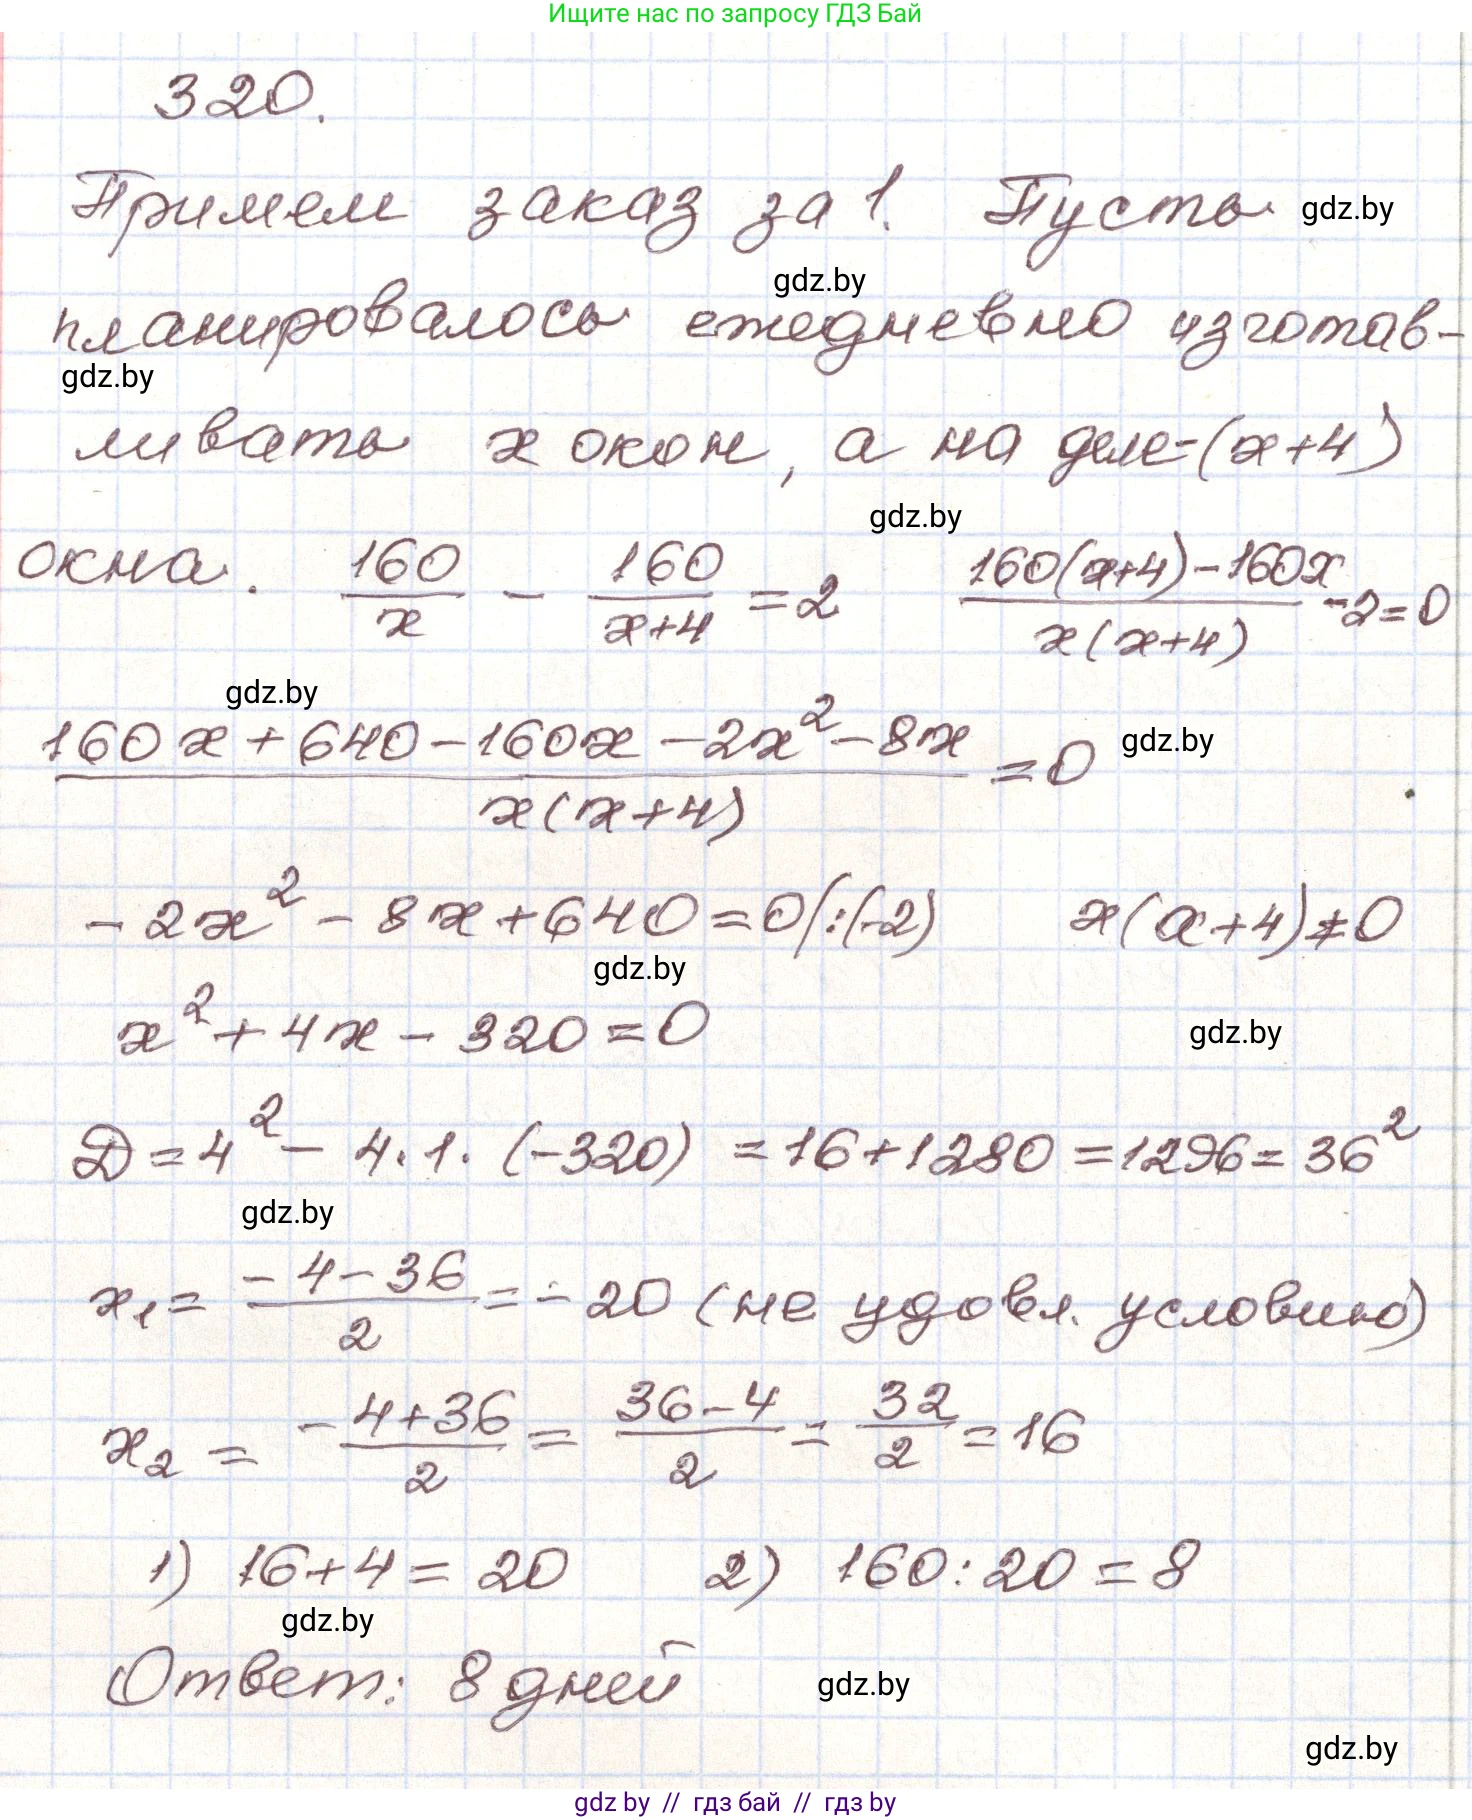 Ищите нас по запросу ГДЗ Бай
320.
Примем заказ за 1. Пусть gdz.by
gdz.by
планировалось ежедневно изготав-
gdz.by
ливать x окон, а на деле-(x+4)
gdz.by
окна. 160/x - 160/(x+4) = 2 (160(x+4)-160x)/(x(x+4)) - 2 = 0
gdz.by
(160x+640-160x-2x²-8x)/(x(x+4)) = 0 gdz.by
-2x²-8x+640=0|:(-2) x(x+4)≠0
gdz.by
x²+4x-320=0 gdz.by
Д=4²-4·1·(-320)=16+1280=1296=36²
gdz.by
x₁=(-4-36)/2=-20 (не удовл. условию)
x₂=(-4+36)/2=(36-4)/2=32/2=16
1) 16+4=20 2) 160:20=8
gdz.by
Ответ: 8 дней gdz.by
gdz.by
gdz by // гдз бай // гдз by